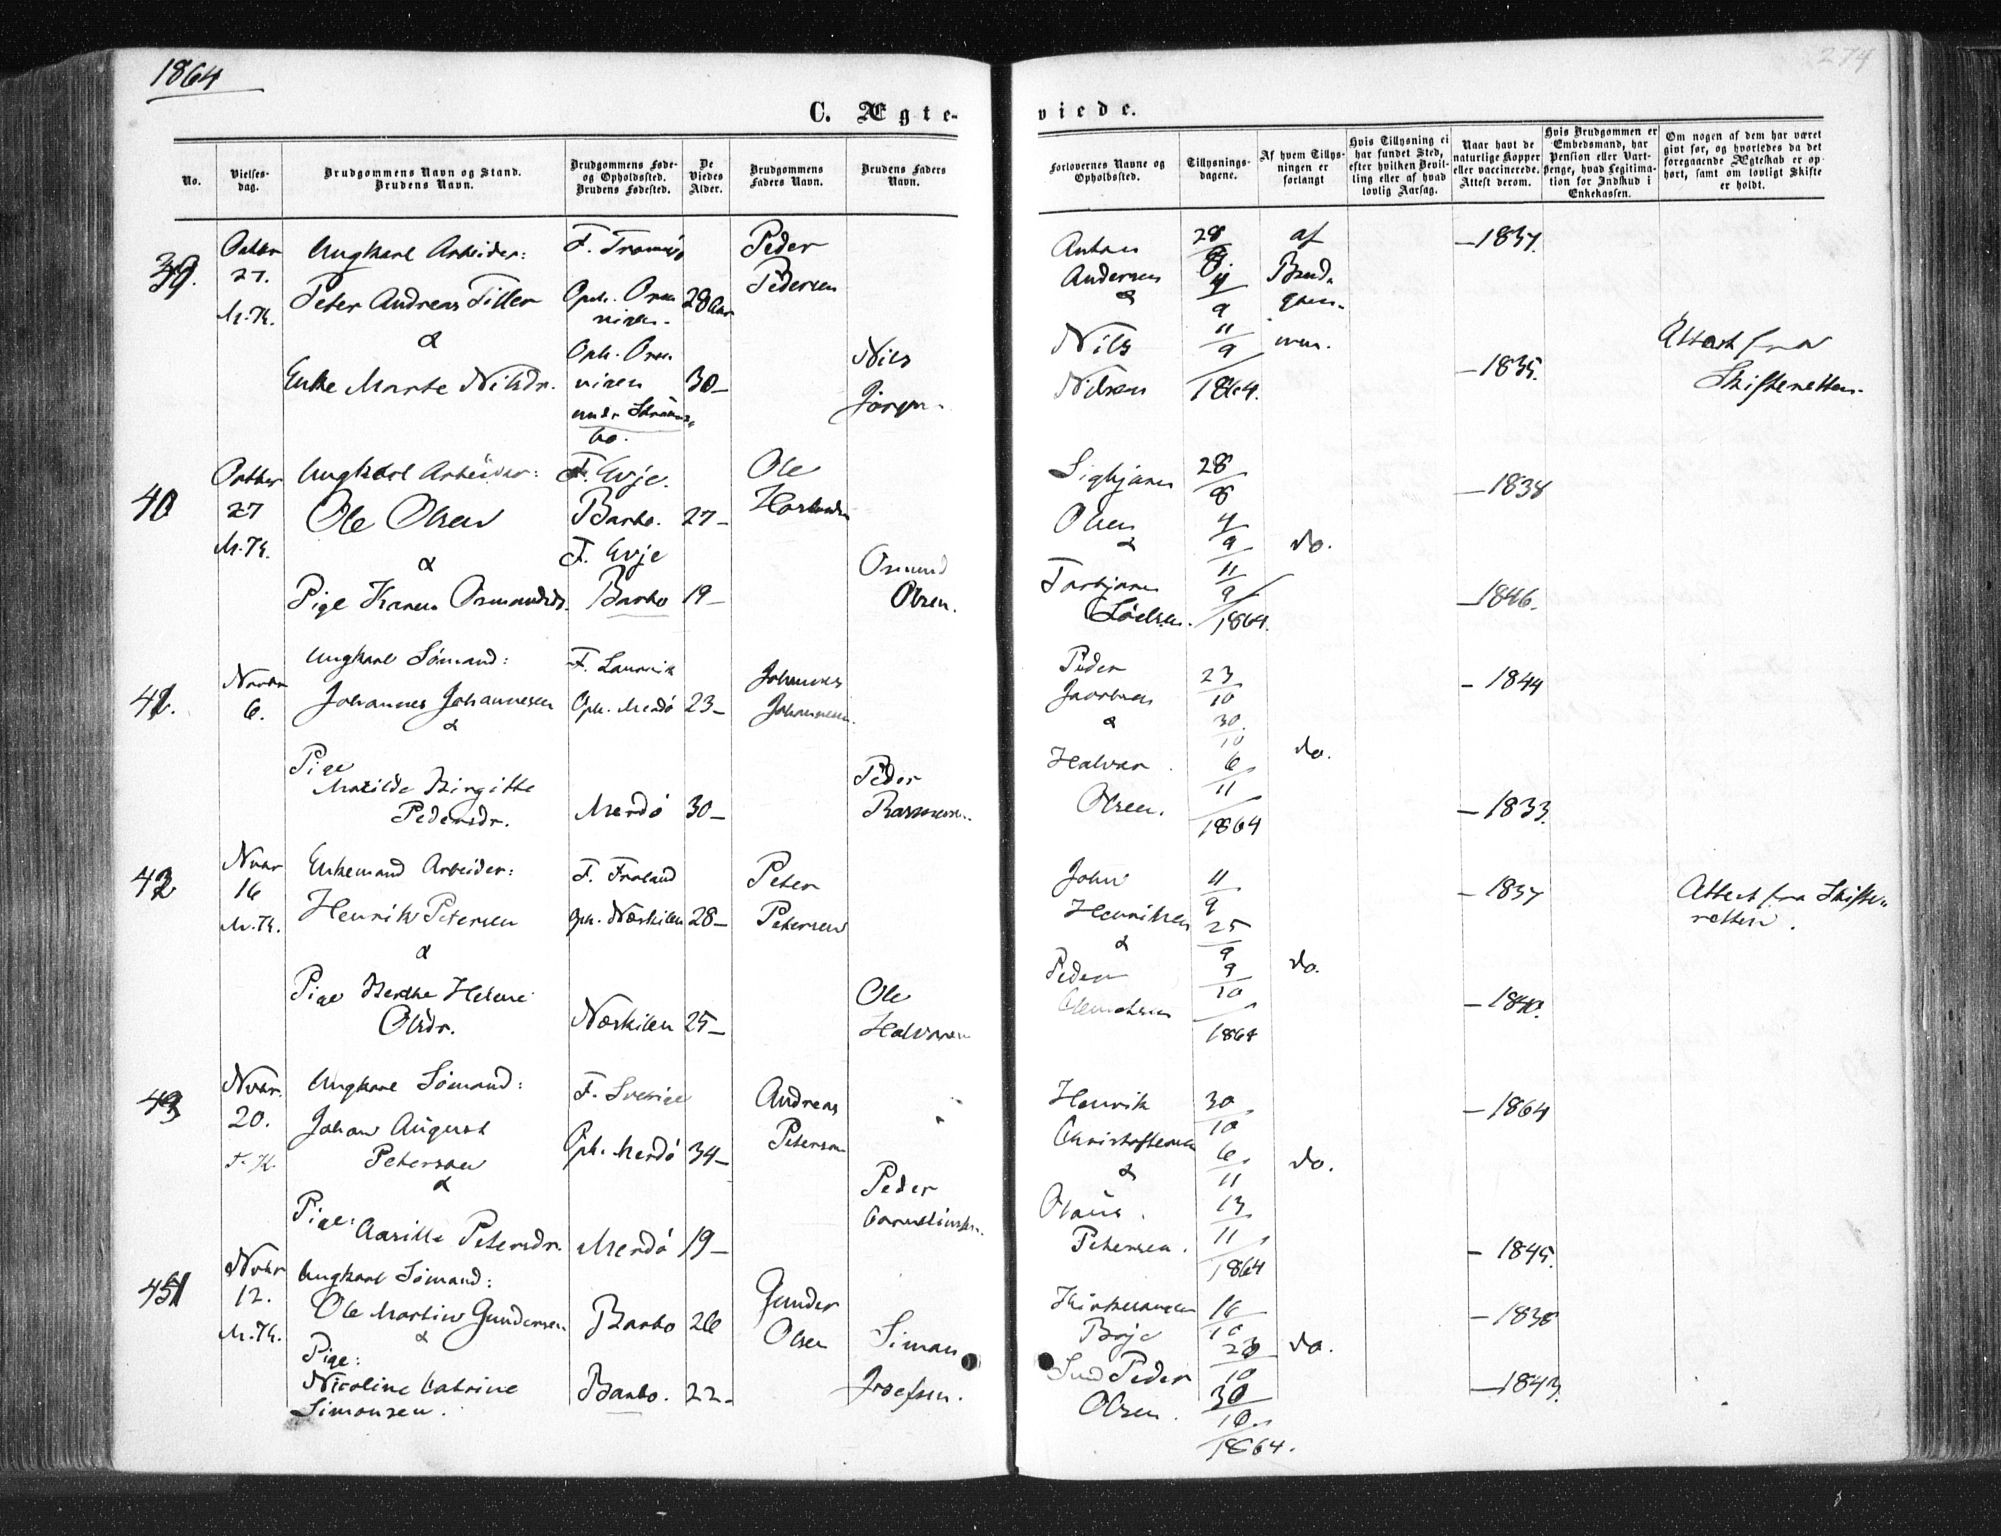 1864
274
C. Ægte-
viede.
No.
Vielses-
dag.
Brudgommens Navn og Stand.
Brudens Navn.
Brudgommens Føde-
og Opholdssted.
Brudens Fødested.
De
Viedes
Alder.
Brudgommens
Faders Navn.
Brudens Faders
Navn.
Forlovernes Navne og
Opholdssted.
Tillysnings-
dagene.
Af hvem Tillys-
ningen er
forlangt
Hvis Tillysning ei
har fundet Sted,
efter hvilken Bevil-
ling eller af hvad
lovlig Aarsag.
Naar havt de
naturlige Kopper
eller vaccinerede.
Attest derom.
Hvis Brudgommen er
Embedsmand, har
Pension eller Vart-
penge, hvad Legitima-
tion for Indskud i
Enkekassen.
Om nogen af dem har været
gift før, og hvorledes da det
foregaaende Ægteskab er op-
hørt, samt om lovligt Skifte
er holdt.
39.
Octbr
27.
M. K.
Ungkarl Arbeider:
Peter Andreas Tiller
&
Enke Marte Nilsdr.
F. Tromsø
Oph.
Oph.
under
bo.
28 Aar
30-
Peder
Pedersen
Nils
Jørgen.
Anton
Andersen
&
Nils
Nilsen
28
4
9
11
9
1864.
af
Brud-
gom-
men.
-1837.
-1835.
Attest fra
Skifteretten.
40
Octber
27
M. K.
Ungkarl Arbeider:
Ole Olsen
&
Pige Karen Osmundsdr.
F. Evje.
Barbo.
F. Evje
Barbo
27-
19-
Ole
Osmund
Olsen.
Sigbjørn
Olsen
&
Torbjørn
28
8
4
9
11
9
1864.
do.
-1838
-1846.
41.
Novbr
6.
Ungkarl Sømand:
Johannes Johannesen
&
Pige
Matilde Birgitte
Pedersdr.
F. Laurvik
Oph. Merdø
Merdø
23-
30-
Johannes
Johannesen.
Peder
Rasmussen.
Peder
Jacobsen
&
Halvor
Olsen.
23
10
30.
10
6
11
1864
do.
- 1844
- 1833.
42
Nvbr
16
M. K.
Enkemand Arbeider:
Henrik Petersen
&
Pige Berthe Helene
Olsdr.
F. Froland
Oph. Næskilen
Næskilen
28-
25-
Peter
Petersen
Ole
Halvorsen
John
Henriksen
&
Peder
11
9
25
9
9
10
1864
do.
- 1837
- 1840.
Attest fra Skifte-
retten.
43
Nvbr.
20.
F. K.
Ungkarl Sømand:
Johan August
Peterson
&
Pige:
Petersdr.
F. Sverige
Oph. Merdø
Merdø
34-
19-
Andreas
Peterson
Peder
Henrik
Christophersen
&
Olaus.
Petersen.
30
10
6.
11
13
11
1864
do.
- 1864
- 1845.
Nvbr
12.
M. K.
Ungkarl Sømand:
Ole Martin Gundersen
&
Pige:
Nicoline Catrine
Simonsen.
Barbo
Barbo.
26
22-
Gunder
Olsen
Simon
Josefsen.
Boje
Peder
Olsen.
16
10
23
10
30
10.
1864.
do.
- 1838
- 1843.